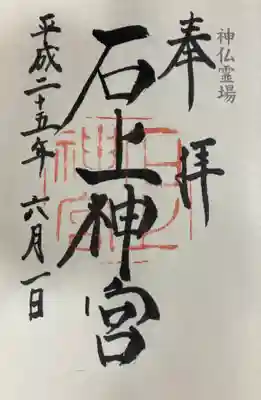 神仏霊場
奉拝
石上神宮
平成二十五年六月一日